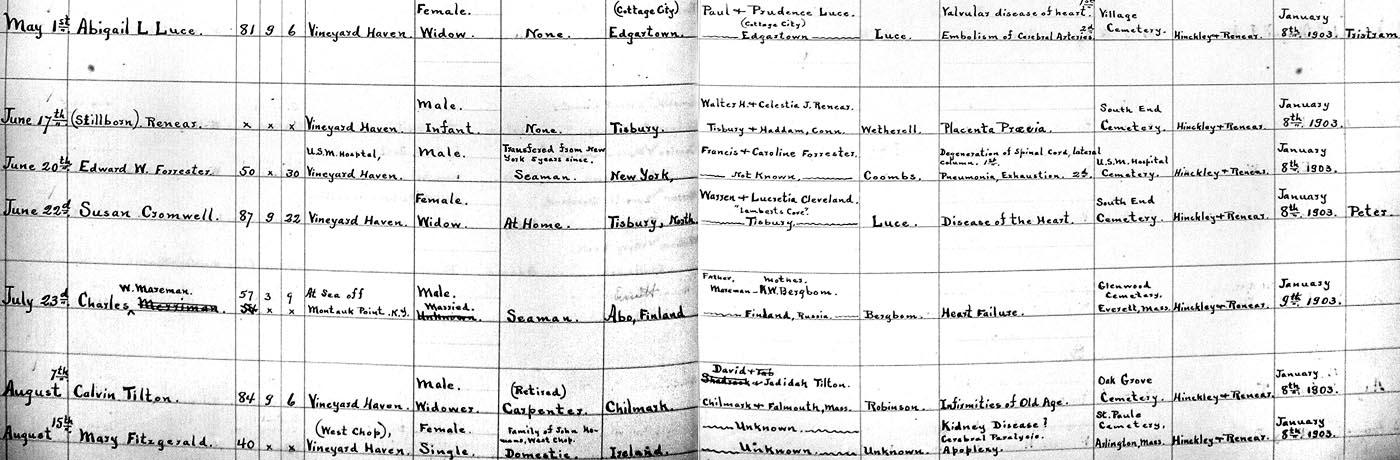 May 1st Abigail L Luce. 81 9 6 Vineyard Haven. Female. Widow. None. (Cottage City) Edgartown. Paul + Prudence Luce. (Cottage City) Edgartown Luce. Valvular disease of heart. 1st Embolism of Cerebral Arteries. 2d Village Cemetery. Hinckley + Renear. January 8th 1903. Tristram
June 17th (Stillborn) Renear. x x x Vineyard Haven. Male. Infant. None. Tisbury. Walter H. + Celestia J. Renear. Tisbury + Haddam, Conn. Wetherell. Placenta Prævia. South End Cemetery. Hinckley + Renear. January 8th 1903.
June 20th Edward W. Forrester. 50 x 30 U.S.M. Hospital, Vineyard Haven. Male. Transfered from New York 5 years since. Seaman. New York, Francis + Caroline Forrester. Not Known, Coombs. Degeneration of Spinal Cord, lateral column. 1st. Pneumonia, Exhaustion. 2d. U.S.M. Hospital Cemetery. Hinckley + Renear. January 8th 1903.
June 22d Susan Cromwell. 87 9 22 Vineyard Haven. Female. Widow. At Home. Tisbury, North Warren + Lucretia Cleveland. "Lamberts Cove". Tisbury. Luce. Disease of the Heart. South End Cemetery. Hinckley + Renear. January 8th 1903. Peter
July 23d Charles W. Mareman. Merriman. 57 3 9 54 x x At Sea off Montauk Point. N.Y. Male. Married. Unknown. Seaman. Abo, Finland Father, Mother. Mareman - M.W. Bergbom. Finland, Russia. Bergbom. Heart Failure. Glenwood Cemetery. Everett, Mass. Hinckley + Renear. January 9th 1903.
August 7th Calvin Tilton. 84 9 6 Vineyard Haven. Male. Widower. (Retired) Carpenter. Chilmark. David + Tab Shadrack + Jedidah Tilton. Chilmark + Falmouth, Mass. Robinson. Infirmities of Old Age. Oak Grove Cemetery. Hinckley + Renear. January 8th 1903.
August 15th Mary Fitzgerald. 40 x x (West Chop), Vineyard Haven. Female. Single. Family of John West Chop. Domestic. Ireland. Unknown. Unknown. Unknown. Kidney Disease? Cerebral Paralysis. Apoplexy. St. Pauls Cemetery, Arlington, Mass. Hinckley + Renear. January 8th 1903.